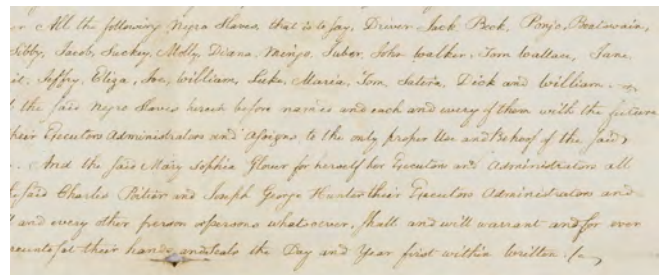 All the following Negro Slaves, that is to say, Driver Jack, Beck, Ponjo, Boatswain,
Sibby, Jacob, Suckey, Molly, Diana, Mingo, Tabor, John Walker, Tom Wallace, Jane,
Jeffry, Eliza, Joe, William, Luke, Maria, Tom, Satira, Dick and William.
the said Negro Slaves herein before named and each and every of them with the future
their Executors Administrators and Assigns to the only proper Use and Behoof of the said
And the said Mary Sophia Glour for herself her Executors and Administrators all
said Charles Poitier and Joseph George Hunter their Executors Administrators and
and every other person or persons whatsoever, shall and will warrant and for ever
set their hands and seals the Day and Year first within written